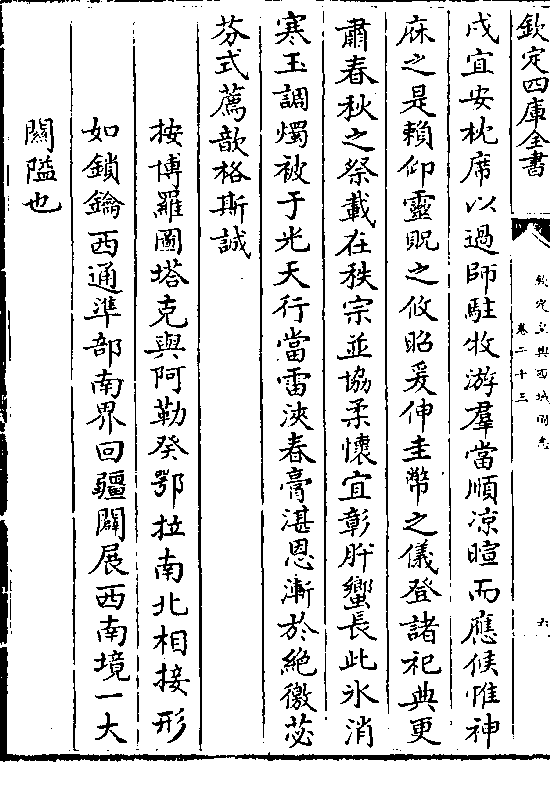 欽定四庫全書
欽定皇輿西域圖志
卷二十三
戍宜安枕席以過師駐牧游羣當順凉暄而應候惟神
庥之是賴仰靈貺之攸昭爰伸圭幣之儀登諸祀典更
肅春秋之祭載在秩宗並協柔懷宜彰肸蠁長此氷消
寒玉調燭被于光天行當雷浹春膏湛恩漸於絶徼苾
芬式薦歆格斯誠
按博羅圖塔克與阿勒癸鄂拉南北相接形
如鎖鑰西通準部南界回疆闢展西南境一大
關隘也